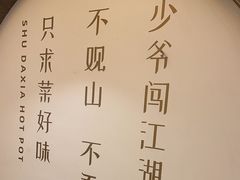 少爷闯江湖
不观山 不
只求菜好味
SHU DAXIA HOT POT